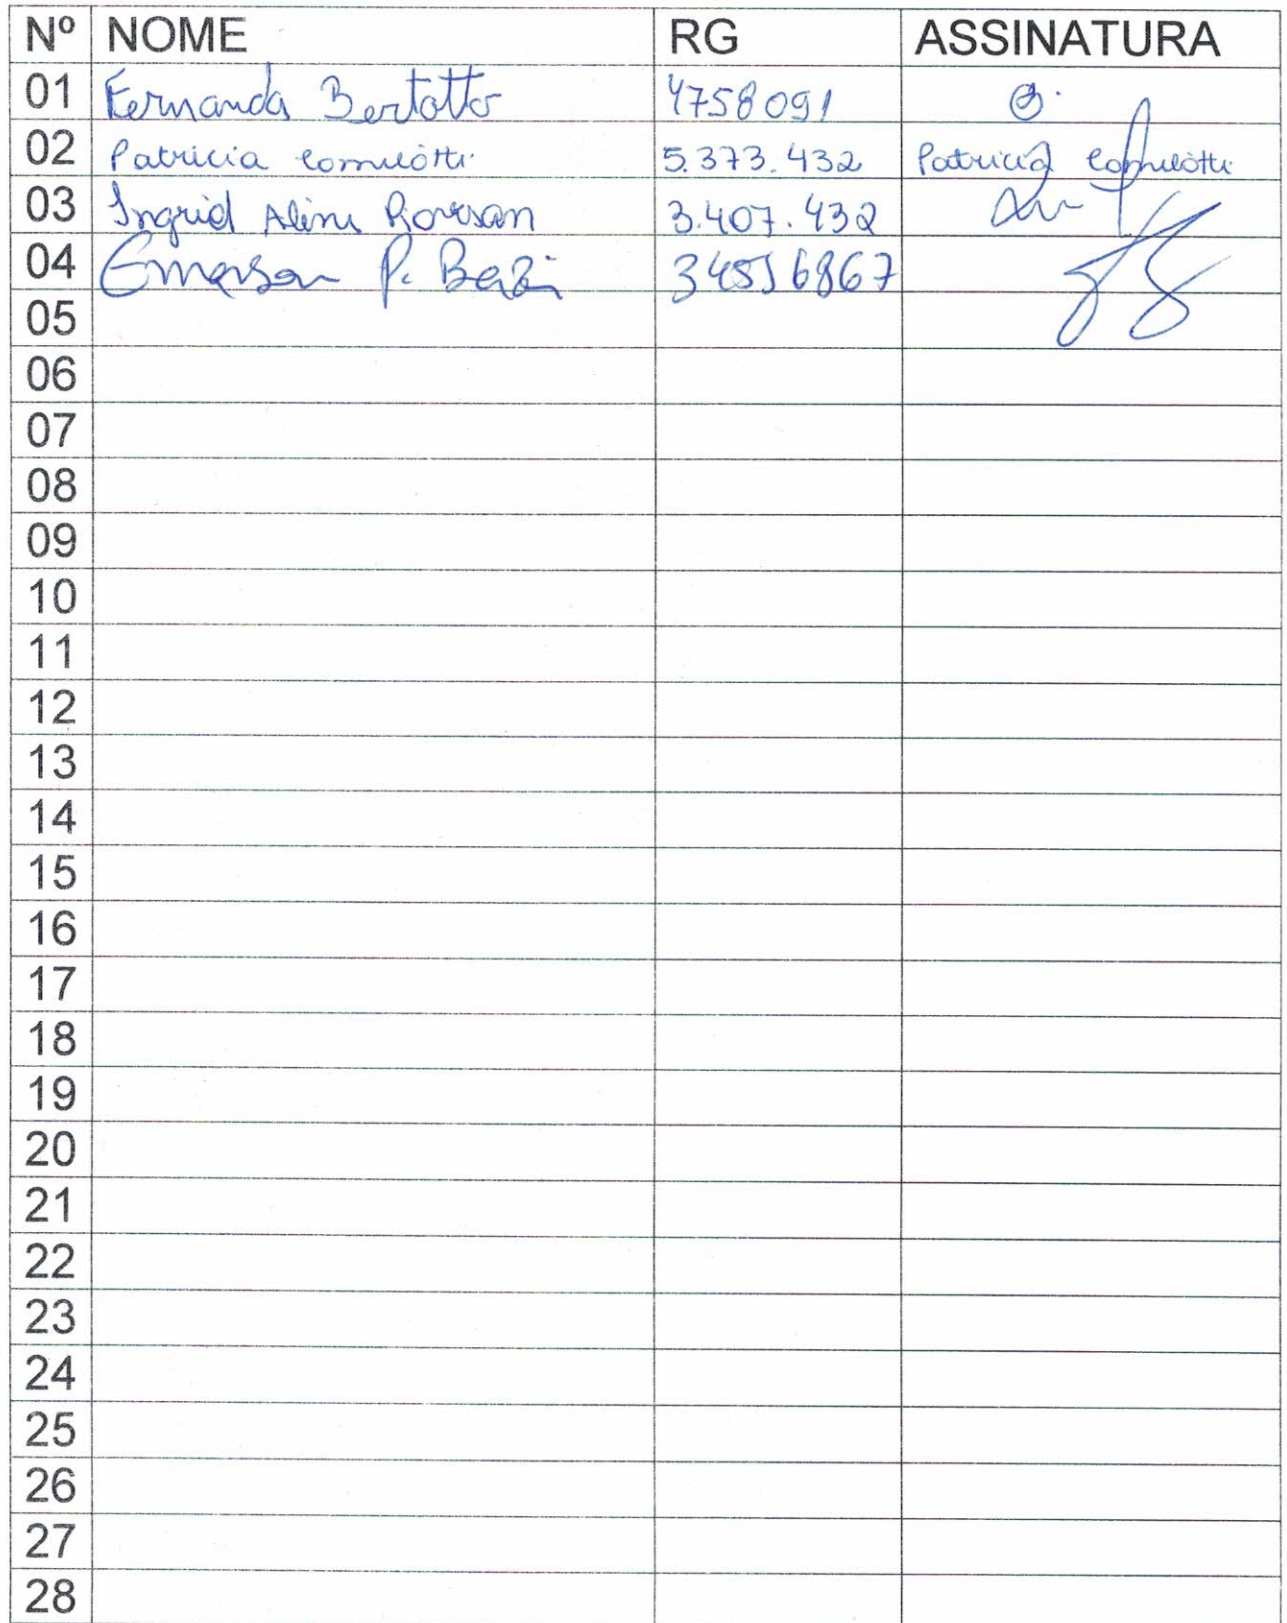 Nº NOME RG ASSINATURA
01 Fernanda Bertotto 4758091
02 Patricia 5.373.432 Patricia
03 Ingrid Aline 3.407.432
04 Emerson P.
05
06
07
08
09
10
11
12
13
14
15
16
17
18
19
20
21
22
23
24
25
26
27
28